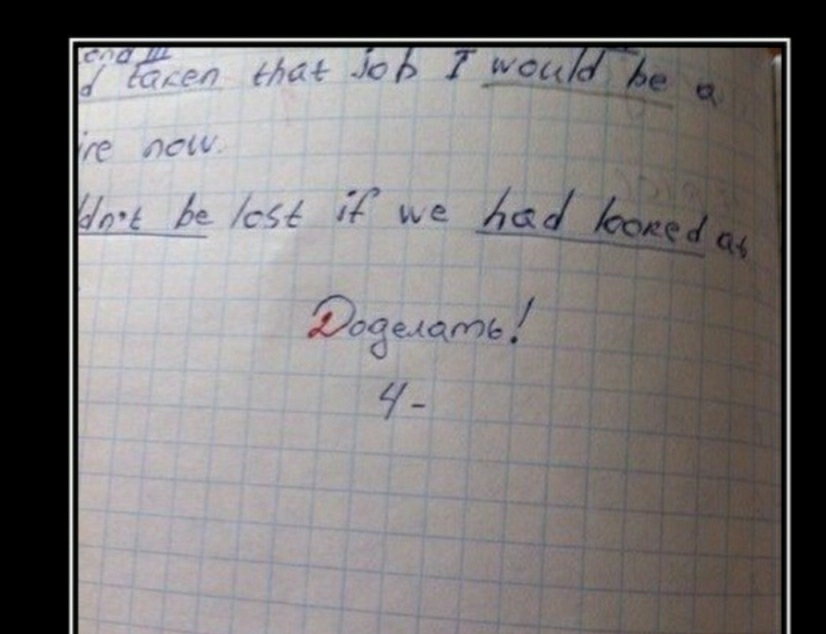 cond III
d taken that job I would be a
ire now.
ldn't be lost if we had looked at
Доделать!
4-